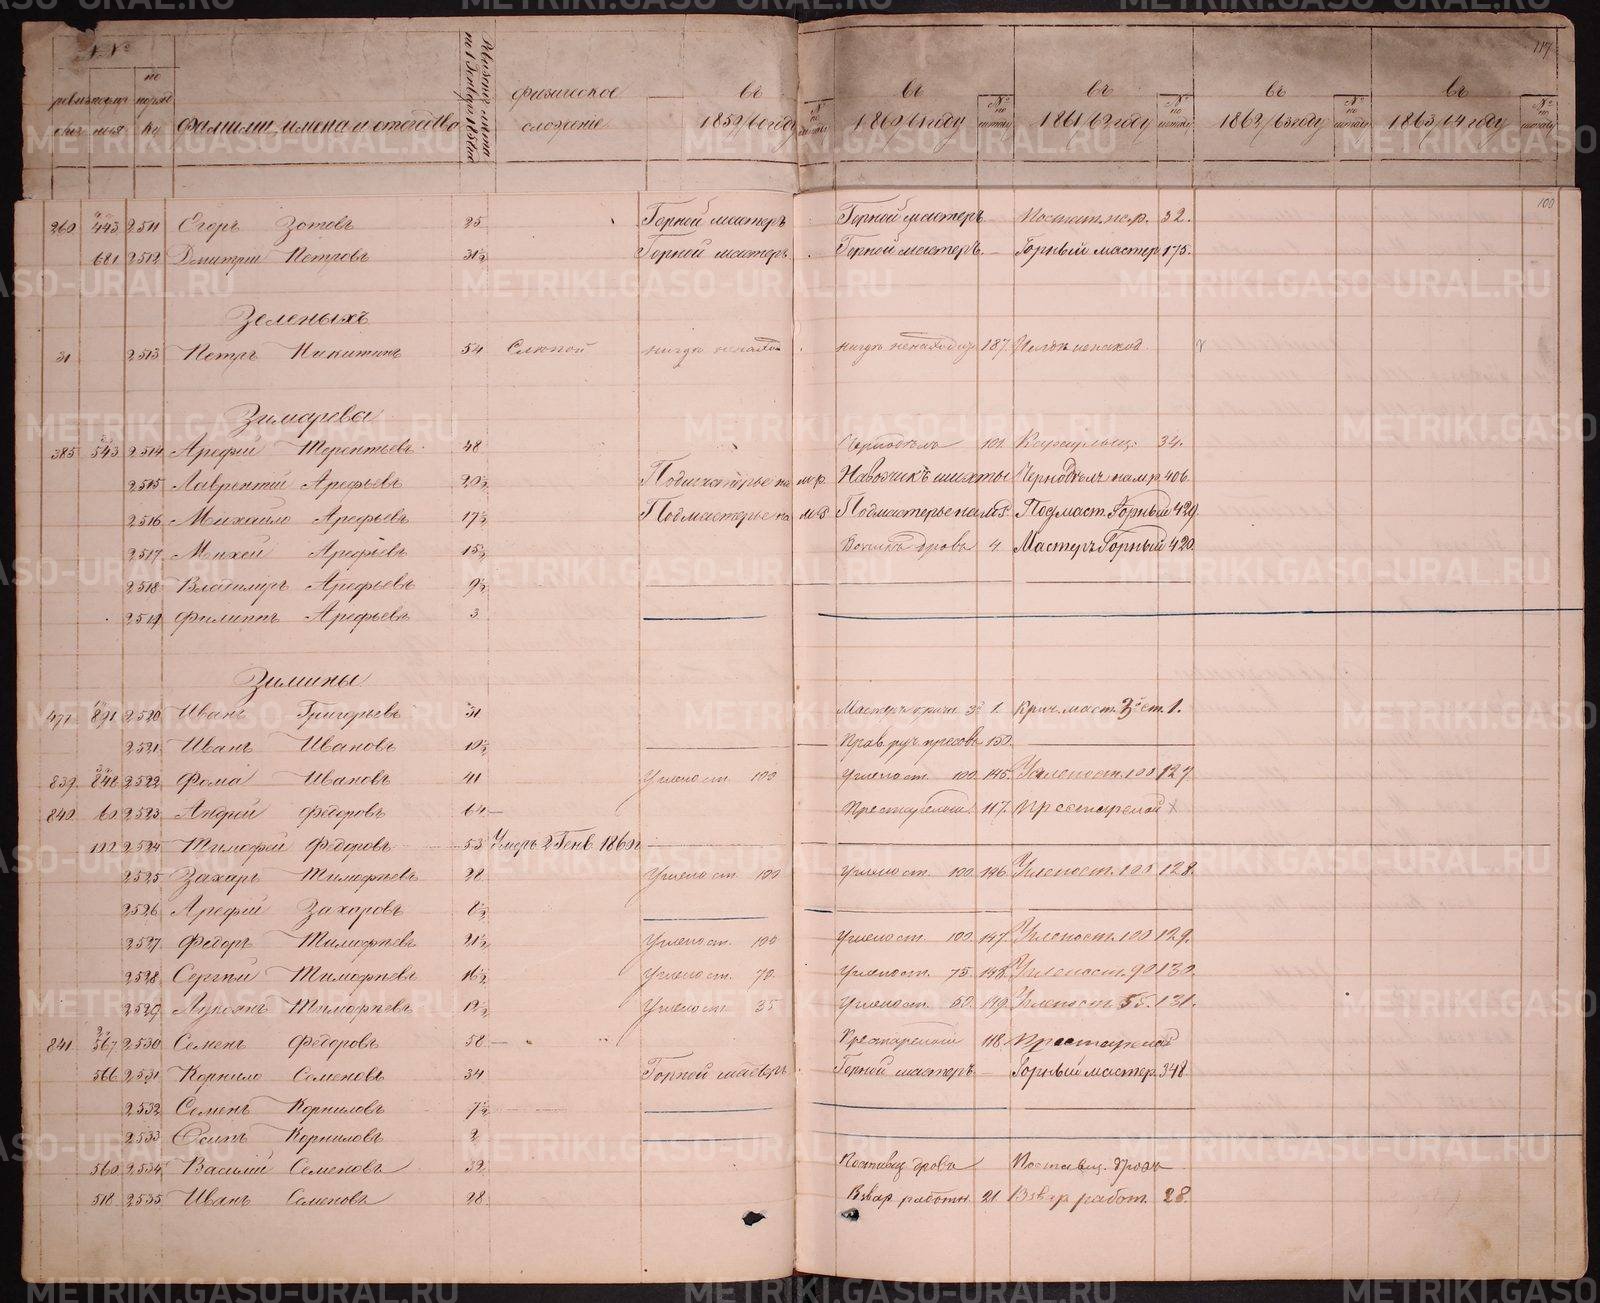 117
№№
по
фамиліи, имена и отчества
физическое
сложеніе
въ
1859/60 году
въ
1860/61 году
№ по штату
въ
1861/62 году
№ по штату
въ
1862/63 году
№ по штату
въ
1863/64 году
№ по штату
100
260 443 2511 Егоръ Зотовъ 25 Горной мастеръ Горной мастеръ 32.
681 2512 Дмитрій Петровъ 31½ Горной мастеръ Горной мастеръ. — Горный мастер 175.
Зеленыхъ
31 2513 Петръ Никитинъ 54 Слепой нигде ненаход. 187.
Зимарева
385 543 2514 Арефій Терентьевъ 48 101 Караульщ. 34.
2515 Лаврентій Арефьевъ 20½ Подмастерье на м.р. Навозчикъ шихты 406.
2516 Михайло Арефьевъ 17½ Подмастерье на м.р. Подмастерье на м.р. Подмаст. Горный 429
2517 Михей Арефьевъ 15½ дровъ 4 Мастеръ Горный 420.
2518 Владимиръ Арефьевъ 9½
2519 Филиппъ Арефьевъ 3
Зимины
477 891 2520 Иванъ Григорьевъ 31 1. Крич. маст. 3й ст. 1.
2521 Иванъ Ивановъ 10½ 150.
839 848 2522 Фома Ивановъ 41 Углепост. 100 Углепост. 100. 145. Углепост. 100 127
840 60 2523 Андрей Федоровъ 64 — Престарелой. 117. Престарелой
2524 Тимофей Федоровъ 53 Умеръ 2 Генв. 1860
2525 Захаръ Тимофеевъ 28 Углепост. 100 Углепост. 100. 146. Углепост. 100 128.
2526 Арефій Захаровъ 6½
2527 Федоръ Тимофеевъ 21½ Углепост. 100 Углепост. 100. 147. Углепост. 100 129.
2528 Сергей Тимофеевъ 16½ Углепост. 70. Углепост. 75. 148. Углепост. 90 130.
2529 Лукоянъ Тимофеевъ 12½ Углепост. 35 Углепост. 50. 149. Углепост. 55. 131.
841 567 2530 Семенъ Федоровъ 58 — Престарелой 118. Престарелой
566 2531 Корнило Семеновъ 34 Горной мастеръ Горной мастеръ — Горный мастер. 348
2532 Семенъ Корниловъ 7½
2533 Осипъ Корниловъ 2
560 2534 Василій Семеновъ 32 Поставщ. дровъ Поставщ. дровъ
518 2535 Иванъ Семеновъ 28 работн. 21 работ. 28.